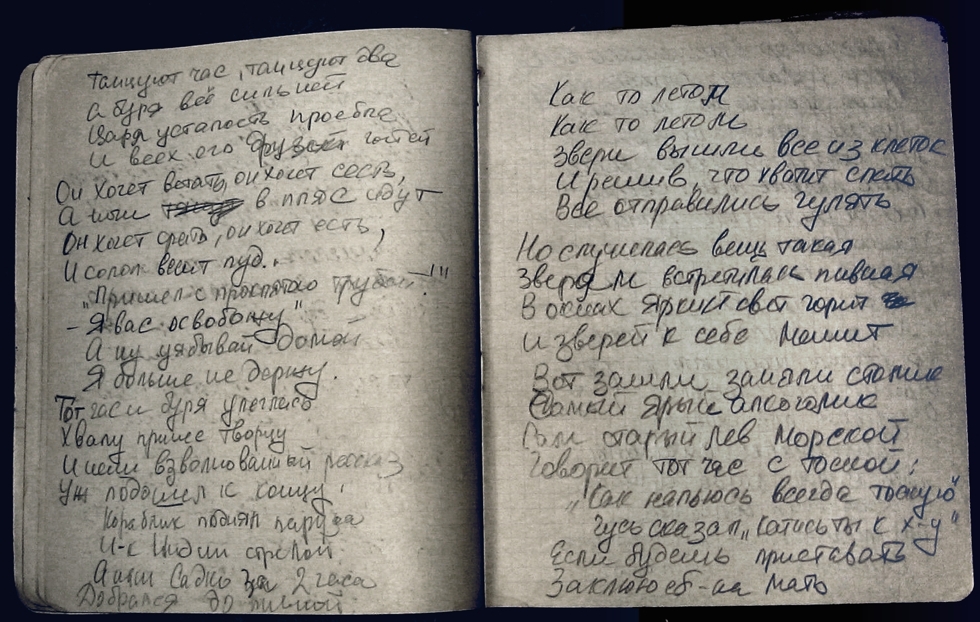 Танцуют час, танцуют два
А буря всё сильней
Царя усталость проебла
И всех его друзей гостей
Он хочет встать, он хочет сесть,
А ноги в пляс идут
Он хочет срать, он хочет есть,
И солоп весит пуд...
„Пришел с проклятою трубой!!!
- Я вас освобожу"
А ну уябывай домой
Я больше не держу.
Тот час и буря улеглась
Хвалу приме творцу
И наш взволнованный рассказ
Уж подошел к концу.
Кораблик поднял паруса
И к Индии стрелой
А наш Садко за 2 часа
Добрался до пивной.
Как то летом
Как то летом
Звери вышли все из клеток
И решив, что хватит спать
Все отправились гулять
Но случилась вещь такая
Зверям встретилась пивная
В окнах яркий свет горит
и зверей к себе манит
Вот зашли заняли столик
Самый ярый алкоголик
Был старый Лев Морской
Говорит тот час с тоской:
„Как напьюсь всегда тоскую"
Гусь сказал „Катись ты к х-у"
Если будешь приставать
Заклюю еб-на мать